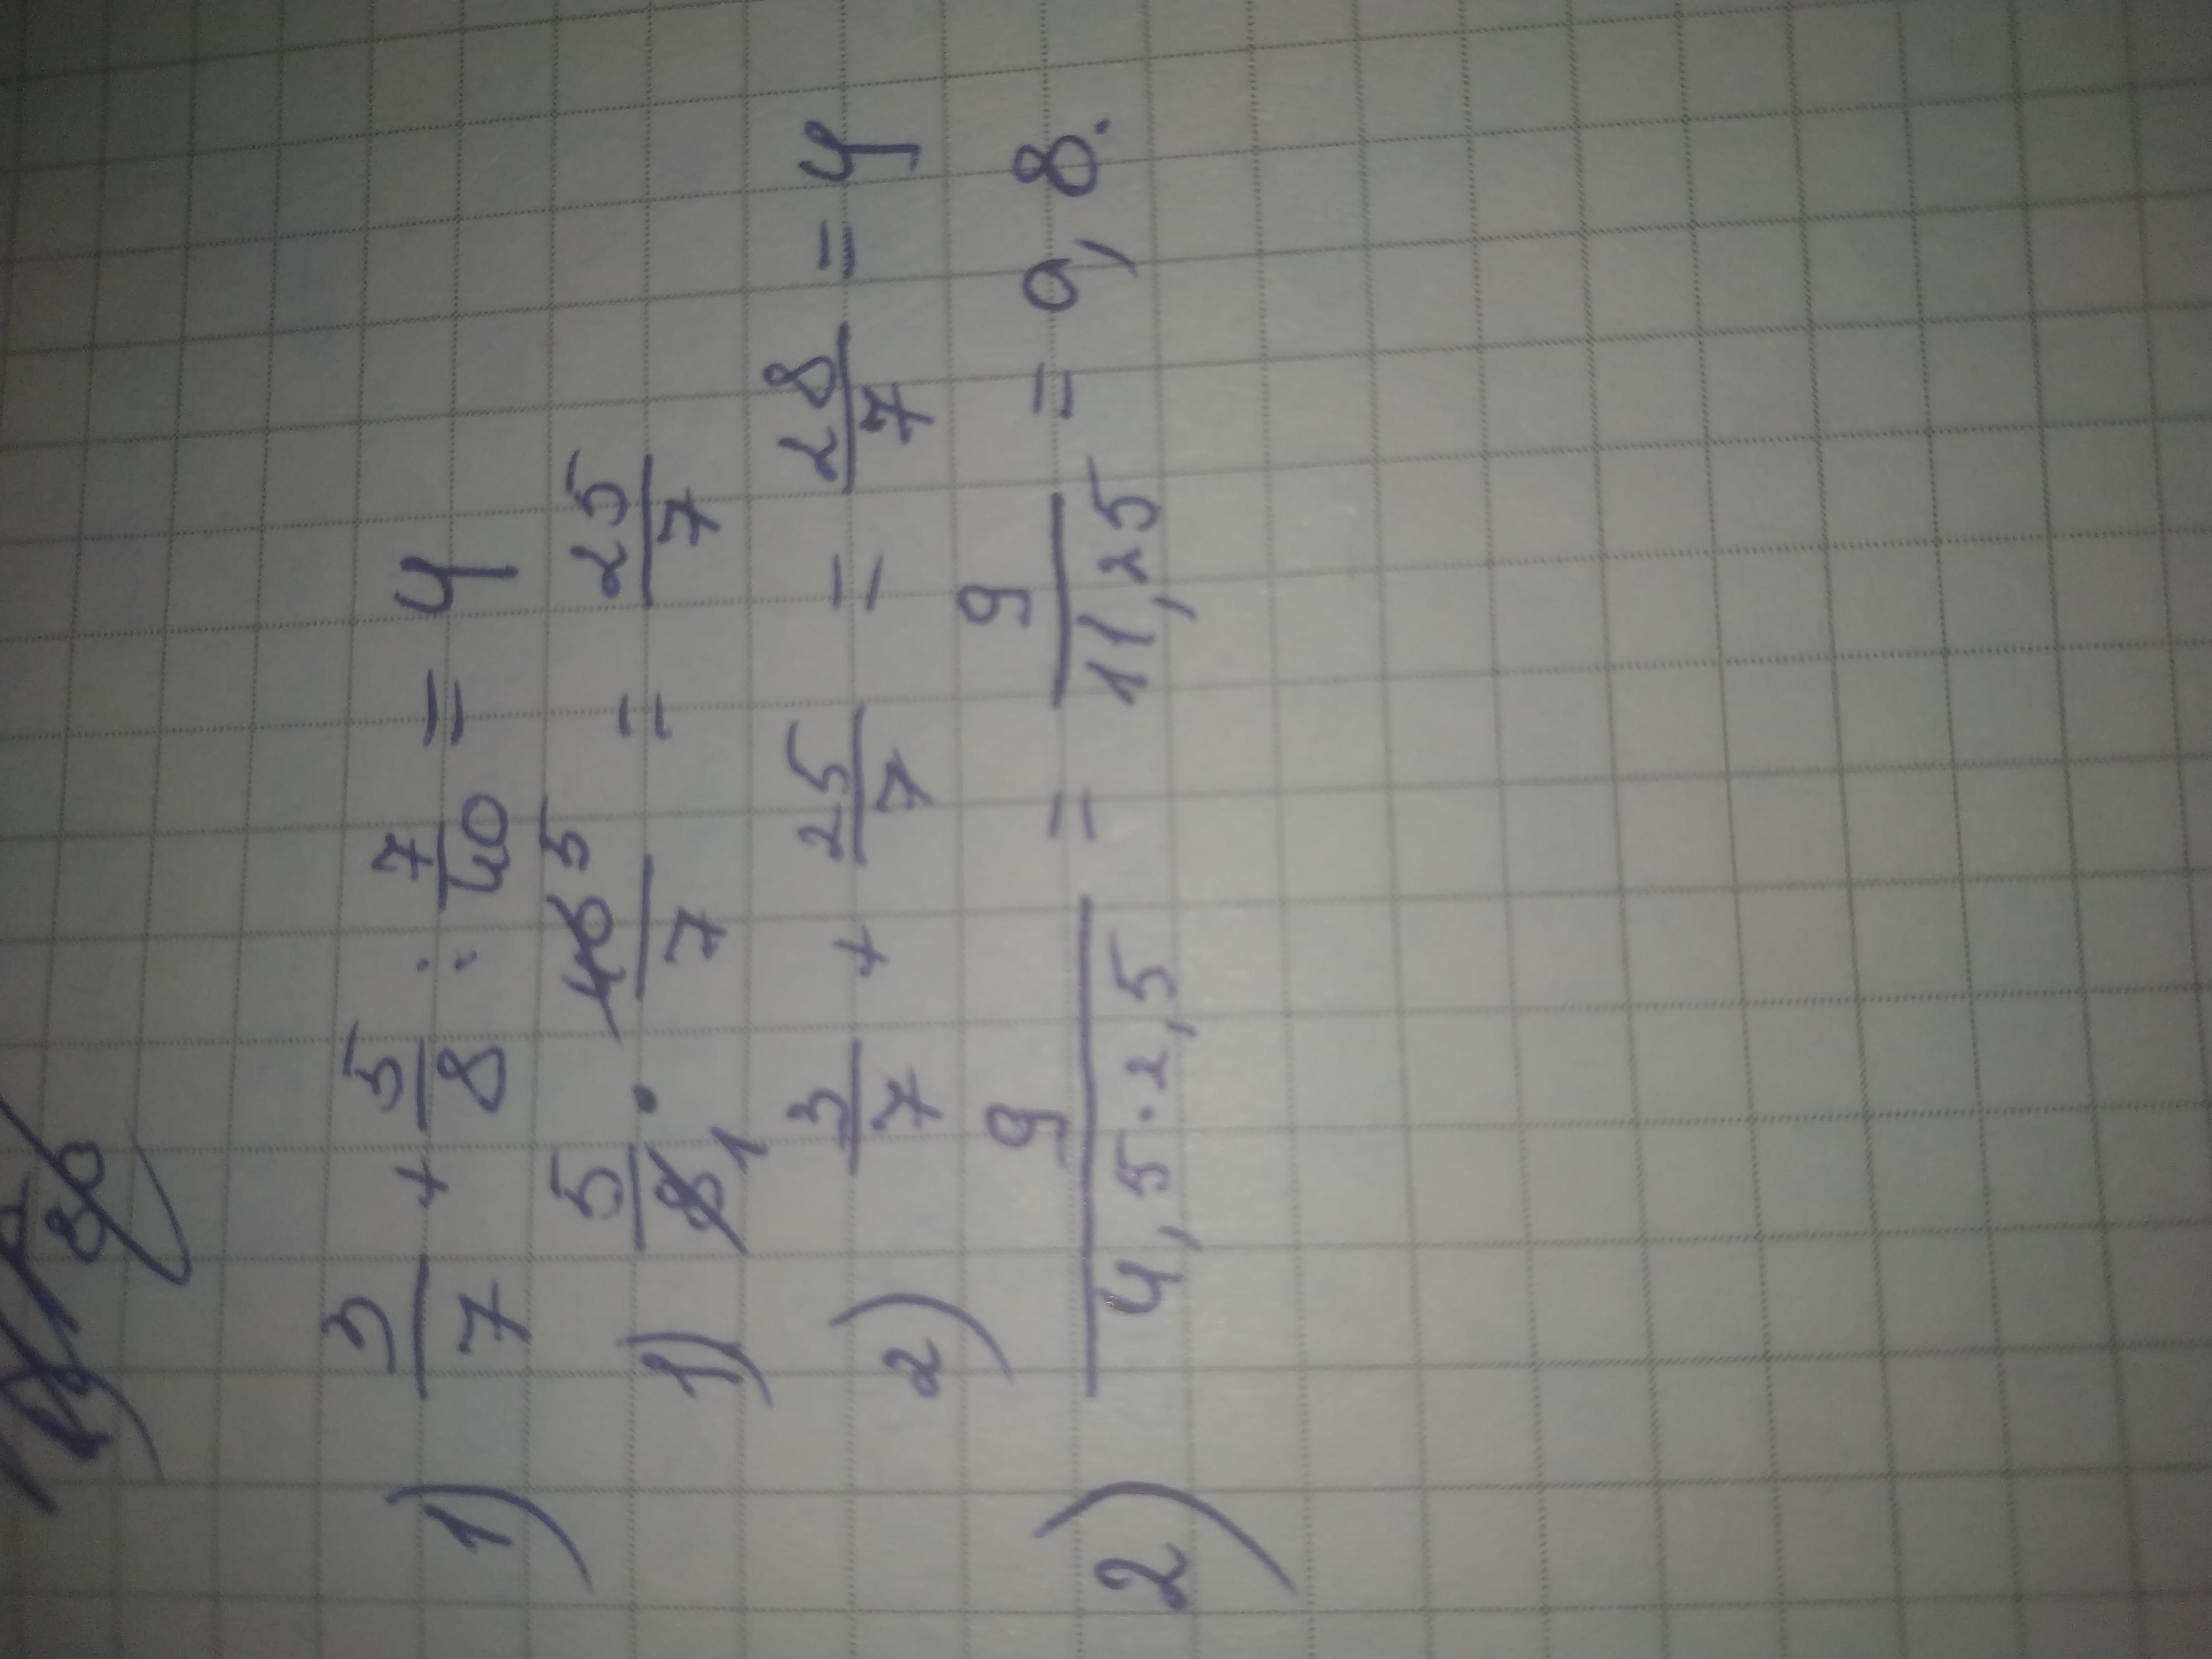 1) 3/7 + 5/8 : 7/40 = 4
1) 5/8 1 · 40 5/7 = 25/7
2) 3/7 + 25/7 = 28/7 = 4
2) 9/4,5·2,5 = 9/11,25 = 0,8.